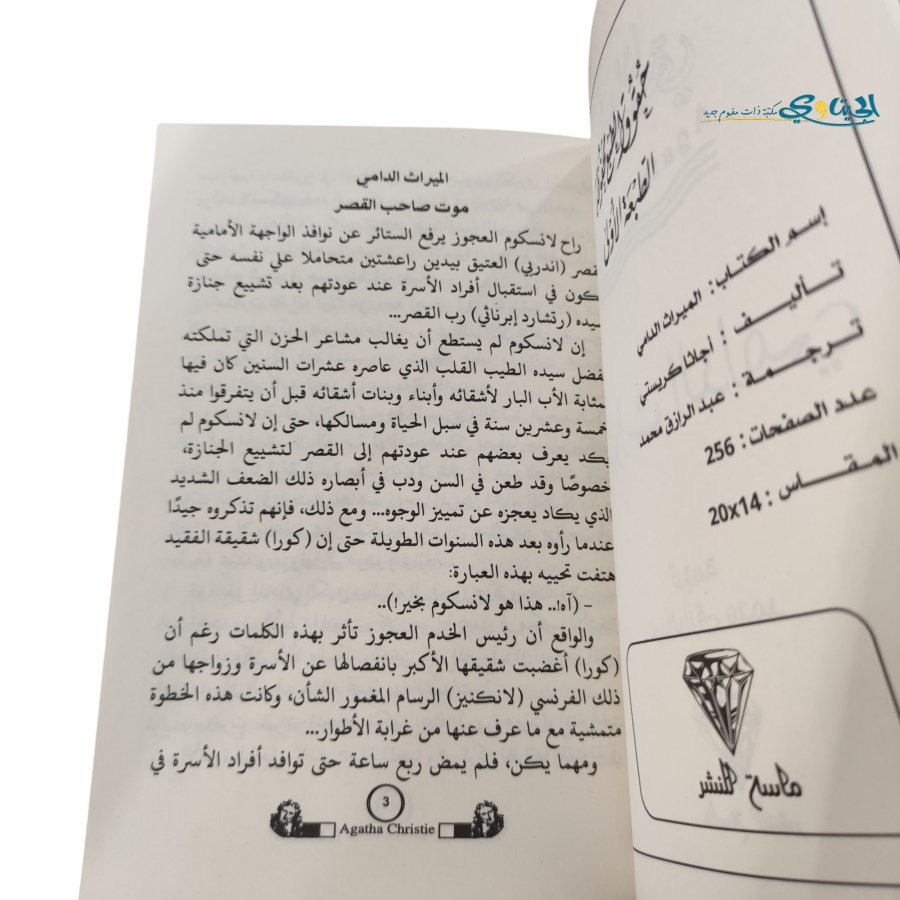 الحيتاوي
مكتبة ذات مفهوم جديد
الطبعة الأولى
إسم الكتاب: الميراث الدامي
تأليف: أجاثا كريستي
ترجمة: عبد الرازق محمد
عدد الصفحات: 256
المقاس: 20x14
ماسة للنشر
الميراث الدامي
موت صاحب القصر
راح لانسكوم العجوز يرفع الستائر عن نوافذ الواجهة الأمامية
قصر (اندربي) العتيق بيدين راعشتين متحاملا علي نفسه حتى
كون في استقبال أفراد الأسرة عند عودتهم بعد تشييع جنازة
سيده (رتشارد إبرناثي) رب القصر...
إن لانسكوم لم يستطع أن يغالب مشاعر الحزن التي تملكته
فضل سيده الطيب القلب الذي عاصره عشرات السنين كان فيها
مثابة الأب البار لأشقائه وأبناء وبنات أشقائه قبل أن يتفرقوا منذ
خمسة وعشرين سنة في سبل الحياة ومسالكها، حتى إن لانسكوم لم
يكد يعرف بعضهم عند عودتهم إلى القصر لتشييع الجنازة،
خصوصًا وقد طعن في السن ودب في أبصاره ذلك الضعف الشديد
الذي يكاد يعجزه عن تمييز الوجوه... ومع ذلك، فإنهم تذكروه جيدًا
عندما رأوه بعد هذه السنوات الطويلة حتى إن (كورا) شقيقة الفقيد
هتفت تحييه بهذه العبارة:
– (آه!.. هذا هو لانسكوم بخير!)..
والواقع أن رئيس الخدم العجوز تأثر بهذه الكلمات رغم أن
(كورا) أغضبت شقيقها الأكبر بانفصالها عن الأسرة وزواجها من
ذلك الفرنسي (لانكنيز) الرسام المغمور الشأن، وكانت هذه الخطوة
متمشية مع ما عرف عنها من غرابة الأطوار...
ومهما يكن، فلم يمض ربع ساعة حتى توافد أفراد الأسرة في
3
Agatha Christie